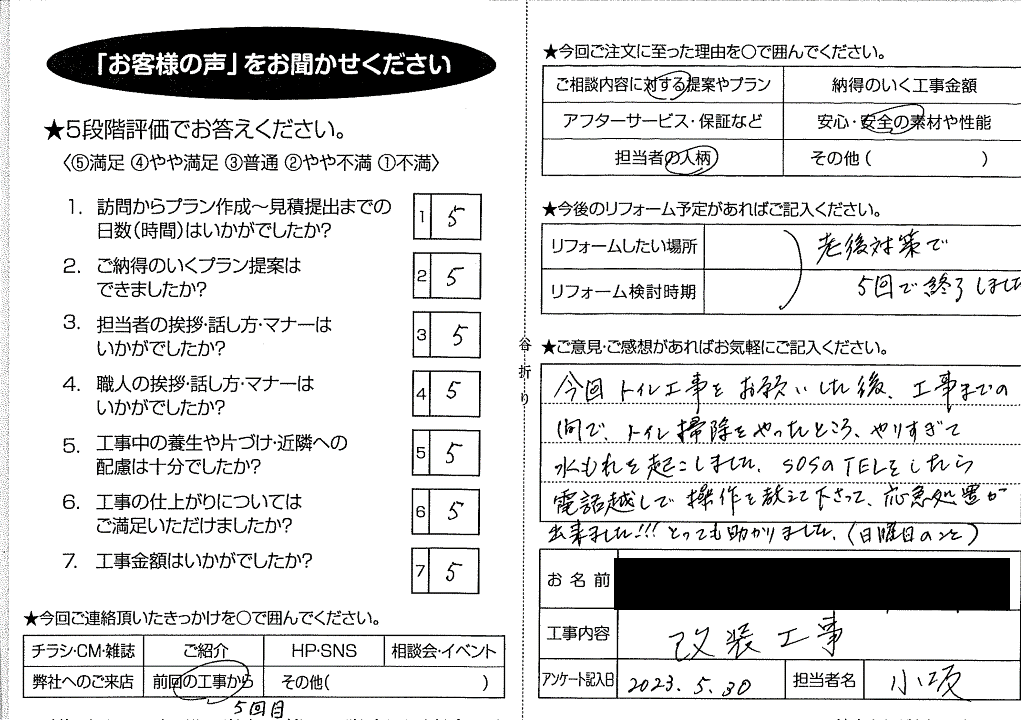 「お客様の声」をお聞かせください
★5段階評価でお答えください。
〈⑤満足 ④やや満足 ③普通 ②やや不満 ①不満〉
1. 訪問からプラン作成〜見積提出までの
日数(時間)はいかがでしたか?
1 5
2. ご納得のいくプラン提案は
できましたか?
2 5
3. 担当者の挨拶・話し方・マナーは
いかがでしたか?
3 5
4. 職人の挨拶・話し方・マナーは
いかがでしたか?
4 5
5. 工事中の養生や片づけ・近隣への
配慮は十分でしたか?
5 5
6. 工事の仕上がりについては
ご満足いただけましたか?
6 5
7. 工事金額はいかがでしたか?
7 5
★今回ご連絡頂いたきっかけを○で囲んでください。
チラシ・CM・雑誌 ご紹介 HP・SNS 相談会・イベント
弊社へのご来店 前回の工事から その他( )
5回目
谷折り
★今回ご注文に至った理由を○で囲んでください。
ご相談内容に対する提案やプラン 納得のいく工事金額
アフターサービス・保証など 安心・安全の素材や性能
担当者の人柄 その他( )
★今後のリフォーム予定があればご記入ください。
リフォームしたい場所 老後対策で
リフォーム検討時期 5回で終了しました
★ご意見・ご感想があればお気軽にご記入ください。
今回トイレ工事をお願いした後、工事までの
間で、トイレ掃除をやったところ、やりすぎて
水もれを起こしました。SOSのTELをしたら
電話越しで操作を教えて下さって、応急処置が
出来ました!!! とっても助かりました。(日曜日のこと)
お名前
工事内容 改装工事
アンケート記入日 2023.5.30 担当者名 小坂